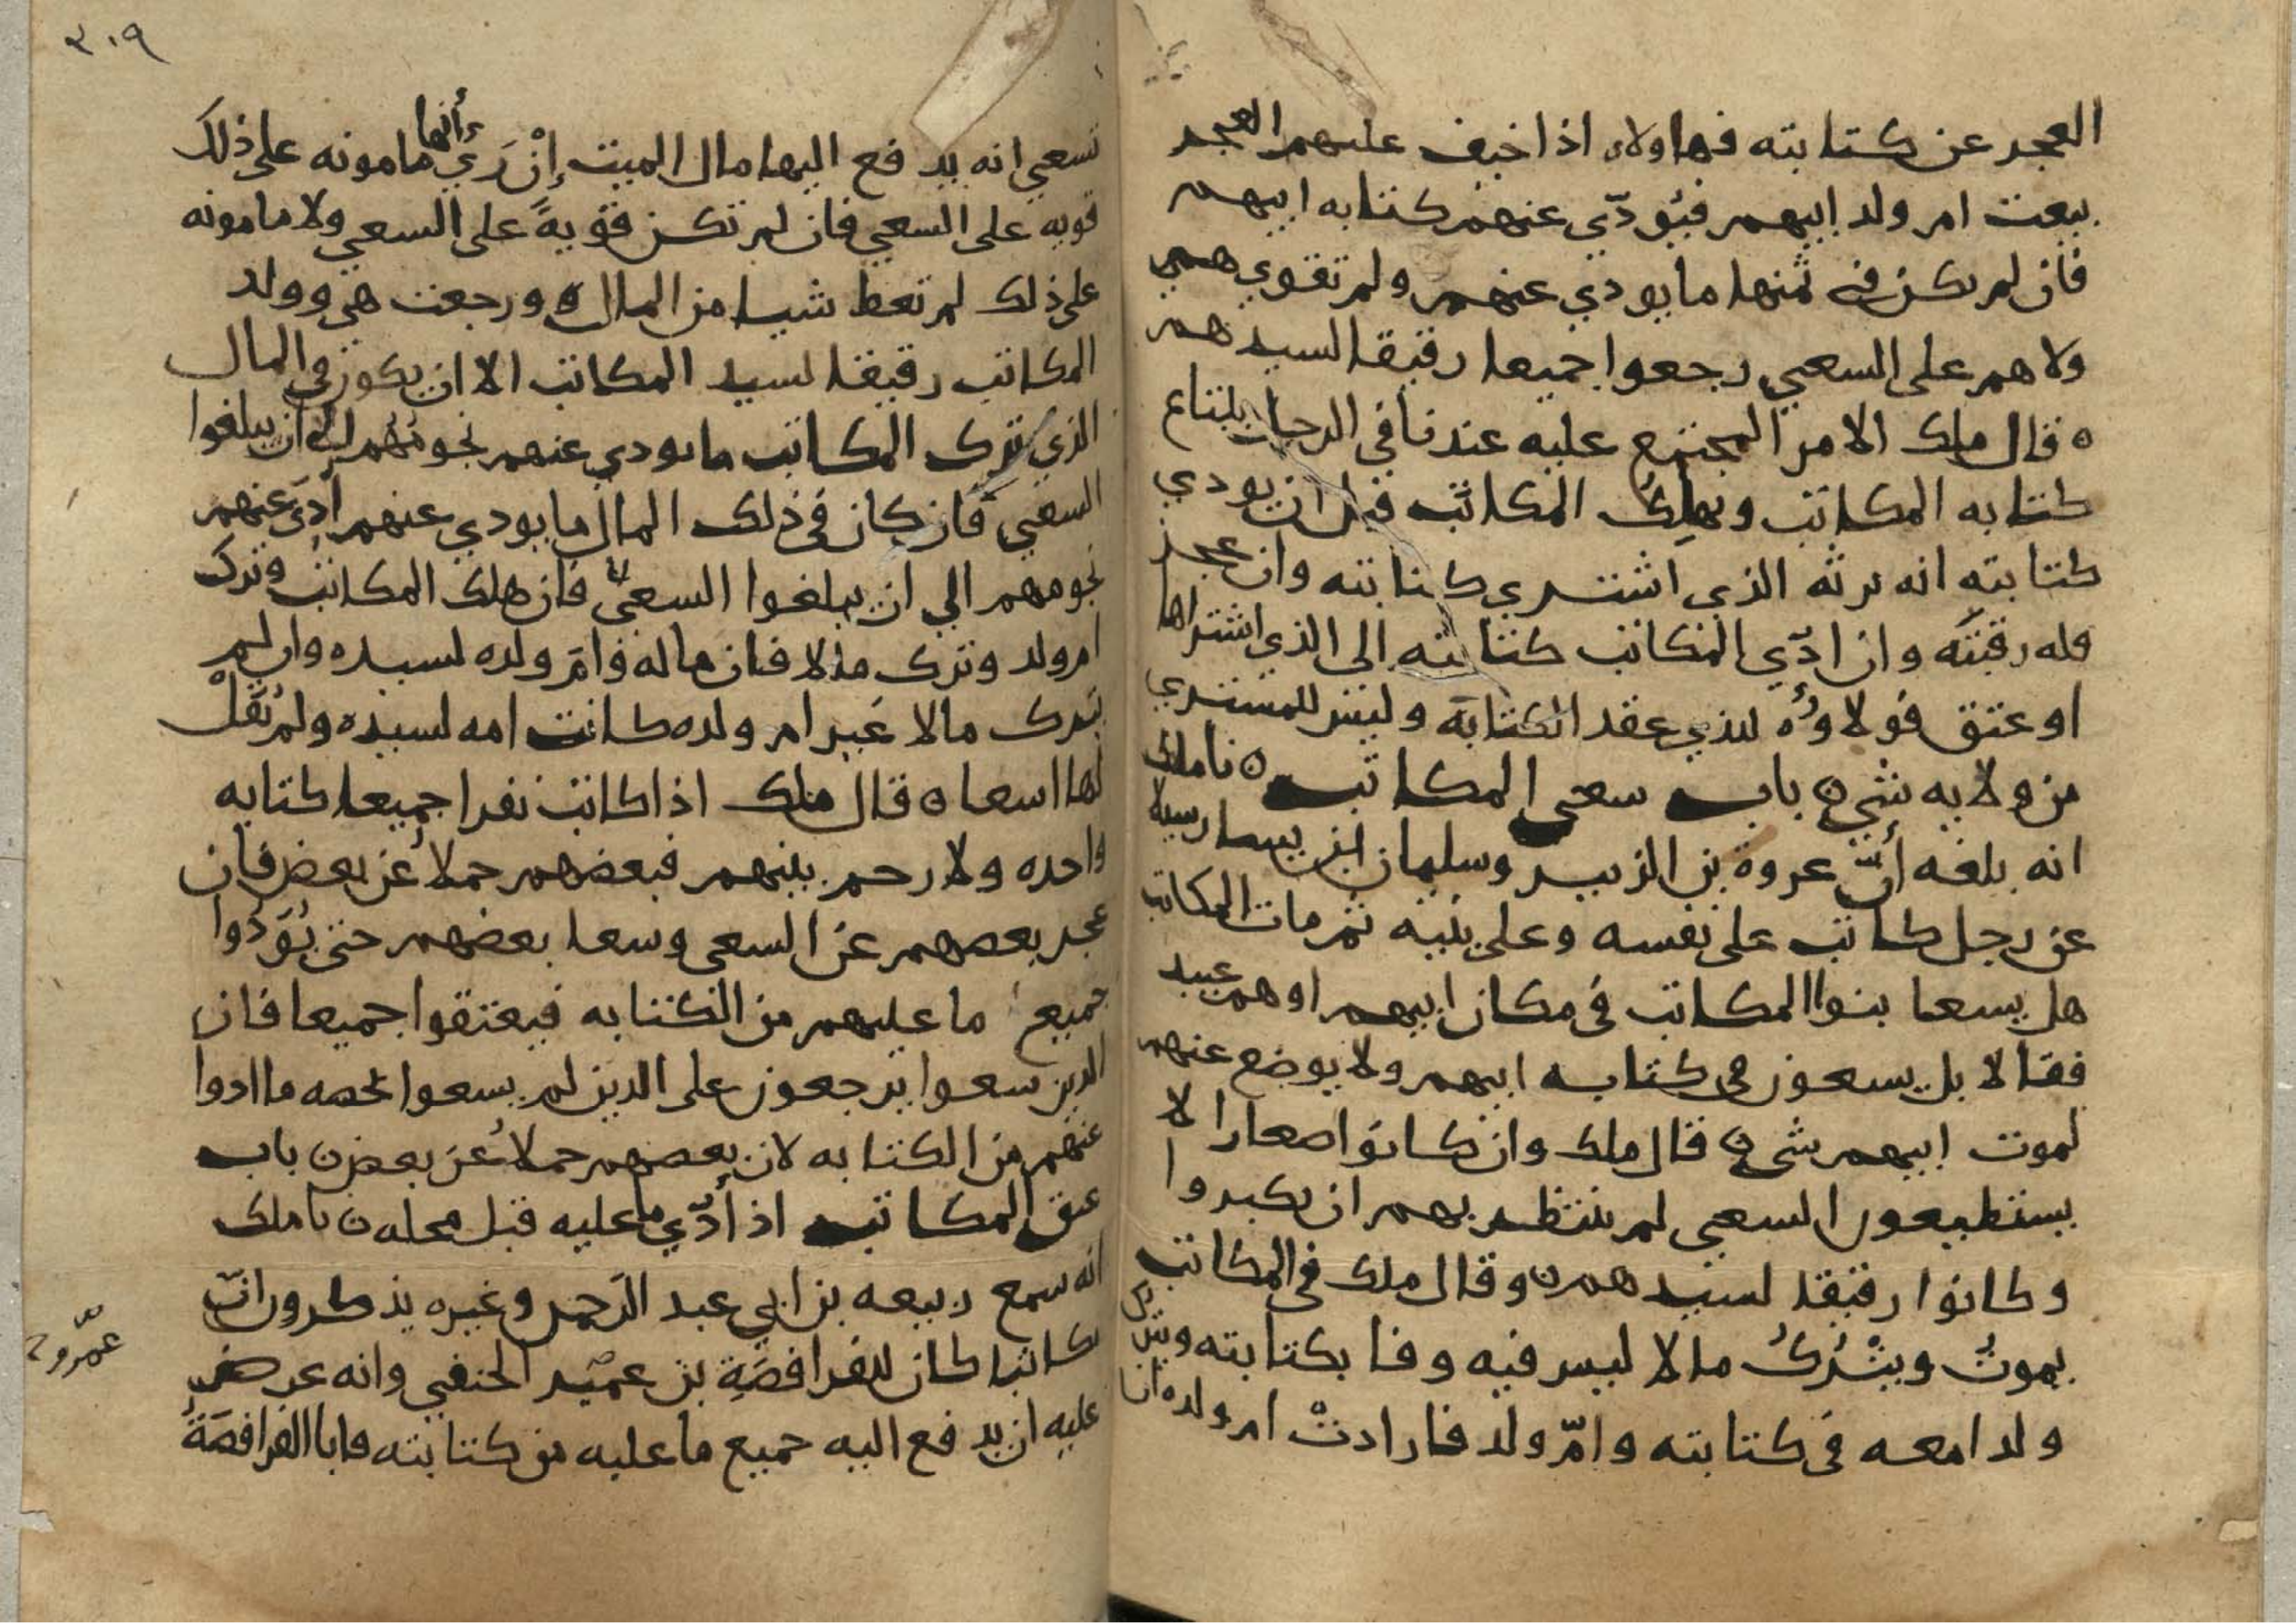 العجز عن كتابته فهاولاء اذا خيف عليهم العجز
بيعت ام ولد ابيهم فيؤدّي عنهم كتابه ابيهم
فان لم يكن في ثمنها ما يودي عنهم ولم تقوي هي
ولا هم علي السعي رجعوا جميعا رقيقا لسيدهم
ه قال ملك الامر المجتمع عليه عندنا في الرجل يبتاع
كتابه المكاتب ويهلِكُ المكاتب قبل ان يودي
كتابته انه يرثه الذي اشتري كتابته وان عجز
فله رقبته وان ادّي المكاتب كتابته الي الذي اشتراها
او عتق فولاؤُه للذي عقد الكتابة وليس للمشتري
من ولايه شي ه باب سعي المكاتب ه نا ملك
انه بلغه أنّ عروة بن الزبير وسليمان ابن يسار سيلا
عن رجل كاتب علي نفسه وعلي بنيه ثم مات المكاتب
هل يسعا بنوا المكاتب في مكان ابيهم او هم عبيد
فقالا بل يسعون في كتابه ابيهم ولا يوضع عنهم
لموت ابيهم شي ه قال ملك وان كانوا صغارا لا
يستطيعون السعي لم ينتظر بهم ان يكبروا
وكانوا رقيقا لسيدهم ه وقال ملك في المكاتب
يموتُ ويتْرُكُ مالا ليس فيه وفا بكتابته ويترك
ولدا معه في كتابته وامّ ولد فارادتْ ام ولده ان
٣٠٩
تسعي انه يدفع اليها مال الميت إنْ رَيءَ أنها مامونه علي ذلك
قويه علي السعي فان لم تكن قويةً علي السعي ولا مامونه
علي ذلك لم تعط شيا من المال ه ورجعت هي وولد
المكاتب رقيقا لسيد المكاتب الا ان يكون في المال
الذي ترك المكاتب ما يودي عنهم نجومُهم الي أن يبلغوا
السعي فان كان في ذلك المال ما يودي عنهم أدّي عنهم
نجومهم الي ان يبلغوا السعي فان هلك المكاتب وترك
ام ولد وترك مالا فان ماله وامّ ولده لسيده وان لم
يترك مالا غير ام ولده كانت امه لسيده ولم يُقَلْ
لها اسعا ه قال ملك اذا كاتب نفرا جميعا كتابه
واحده ولا رحم بينهم فبعضهم حملاءُ عن بعض فان
عجز بعضهم عن السعي وسعا بعضهم حتي يُؤَدُّوا
جميع ما عليهم من الكتابه فيعتقوا جميعا فان
الذين سعوا يرجعون علي الذين لم يسعوا بحصه ما ادوا
عنهم من الكتابه لان بعضهم حملاءُ عن بعض ه باب
عتق المكاتب اذا أدّي ما عليه قبل محله ه نا ملك
انه سمع ربيعه بن ابي عبد الرحمن وغيره يذكرون انّ
مكاتبا كان للفرافصَةِ بن عمير الحنفي وانه عرض
عليه ان يدفع اليه جميع ما عليه من كتابته فابا الفرافصَةُ